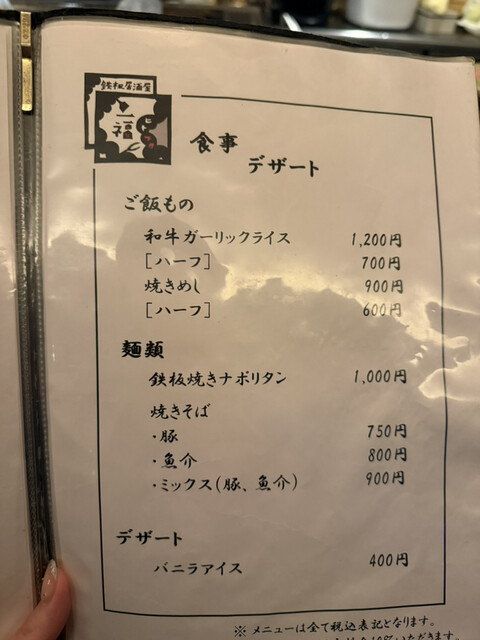 鉄板居酒屋
一福
食事
デザート
ご飯もの
和牛ガーリックライス 1,200円
[ハーフ] 700円
焼きめし 900円
[ハーフ] 600円
麺類
鉄板焼きナポリタン 1,000円
焼きそば
・豚 750円
・魚介 800円
・ミックス(豚、魚介) 900円
デザート
バニラアイス 400円
※ メニューは全て税込表記となります。